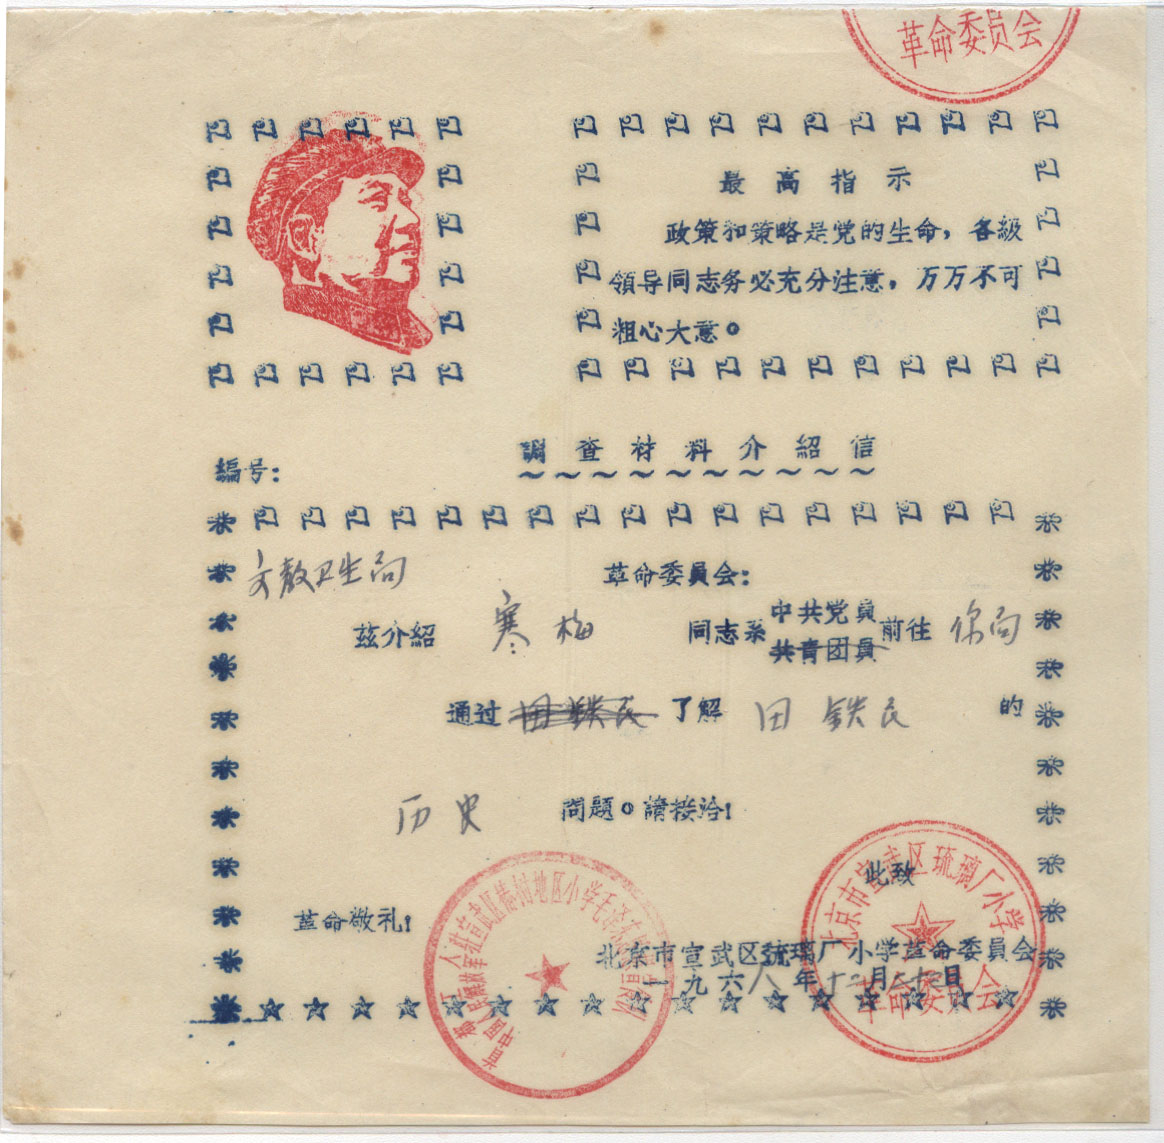 革命委员会
最高指示
政策和策略是党的生命，各級
領导同志务必充分注意，万万不可
粗心大意。
調查材料介紹信
編号：
文教卫生局 革命委員会：
兹介紹 寒梅 同志系 中共党員 共青团員 前往 你局
通过 田铁民 了解 田铁民 的
历史 問題。請接洽！
此致
革命敬礼！
北京市宣武区琉璃厂小学革命委員会
一九六八年十二月 日
北京市宣武区琉璃厂小学
革命委员会